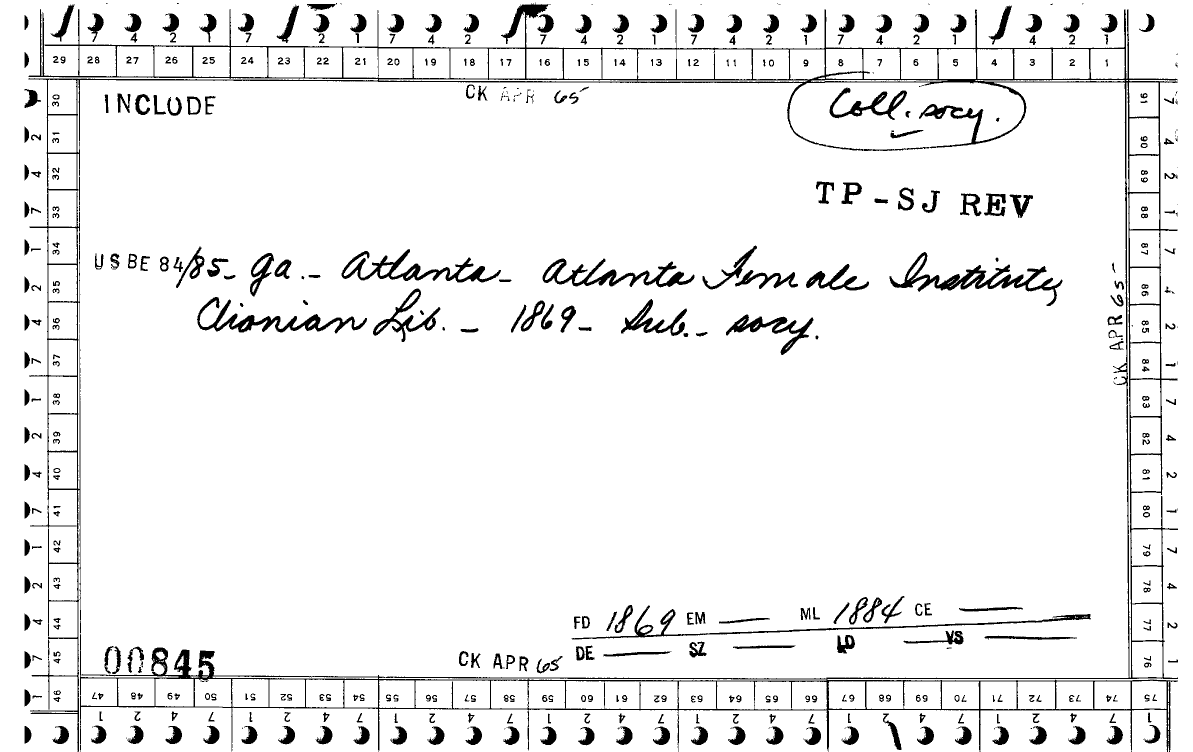 7 4 2 1 7 4 2 1 7 4 2 1 7 4 2 1 7 4 2 1 7 4 2 1 7 4 2 1
29 28 27 26 25 24 23 22 21 20 19 18 17 16 15 14 13 12 11 10 9 8 7 6 5 4 3 2 1
INCLUDE
CK APR 65
Coll. socy.
TP-SJ REV
USBE 84/85- Ga. - Atlanta - Atlanta Female Institute,
Clionian Lib. - 1869 - Sub. - socy.
CK APR 65-
FD 1869 EM — ML 1884 CE —
DE — SZ — LD — VS —
00845
CK APR 65
30 31 32 33 34 35 36 37 38 39 40 41 42 43 44 45 46
91 90 89 88 87 86 85 84 83 82 81 80 79 78 77 76
47 48 49 50 51 52 53 54 55 56 57 58 59 60 61 62 63 64 65 66 67 68 69 70 71 72 73 74 75